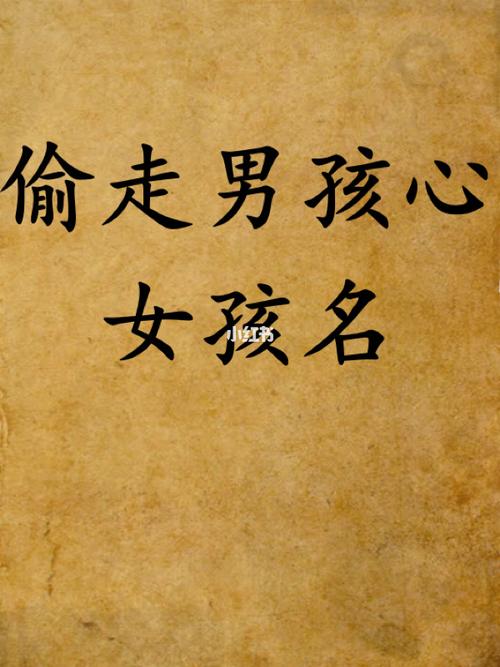 偷走男孩心
女孩名
小红书